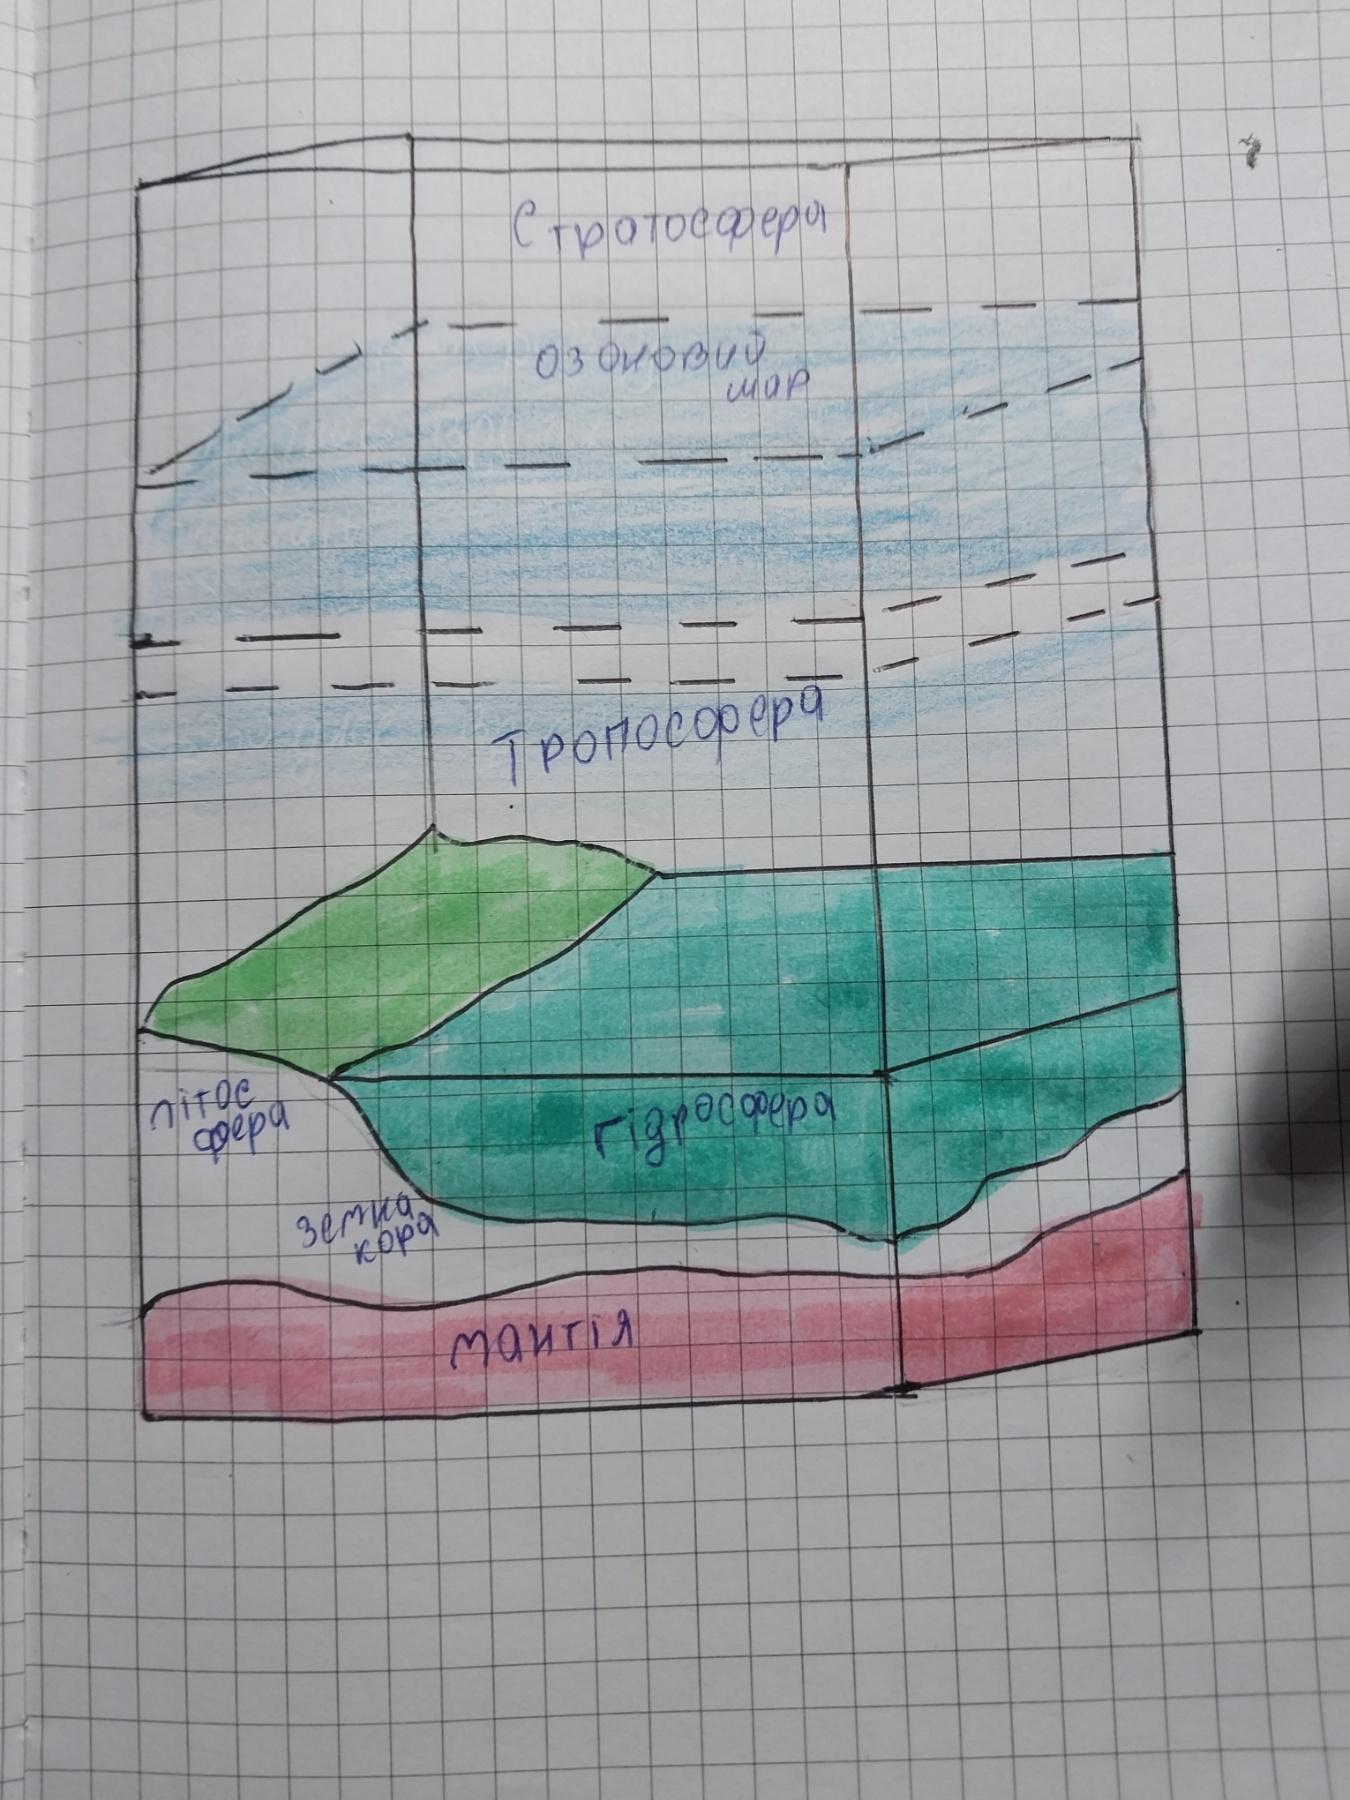 Стратосфера
озоновий
шар
Тропосфера
літос
фера
гідросфера
земна
кора
мантія